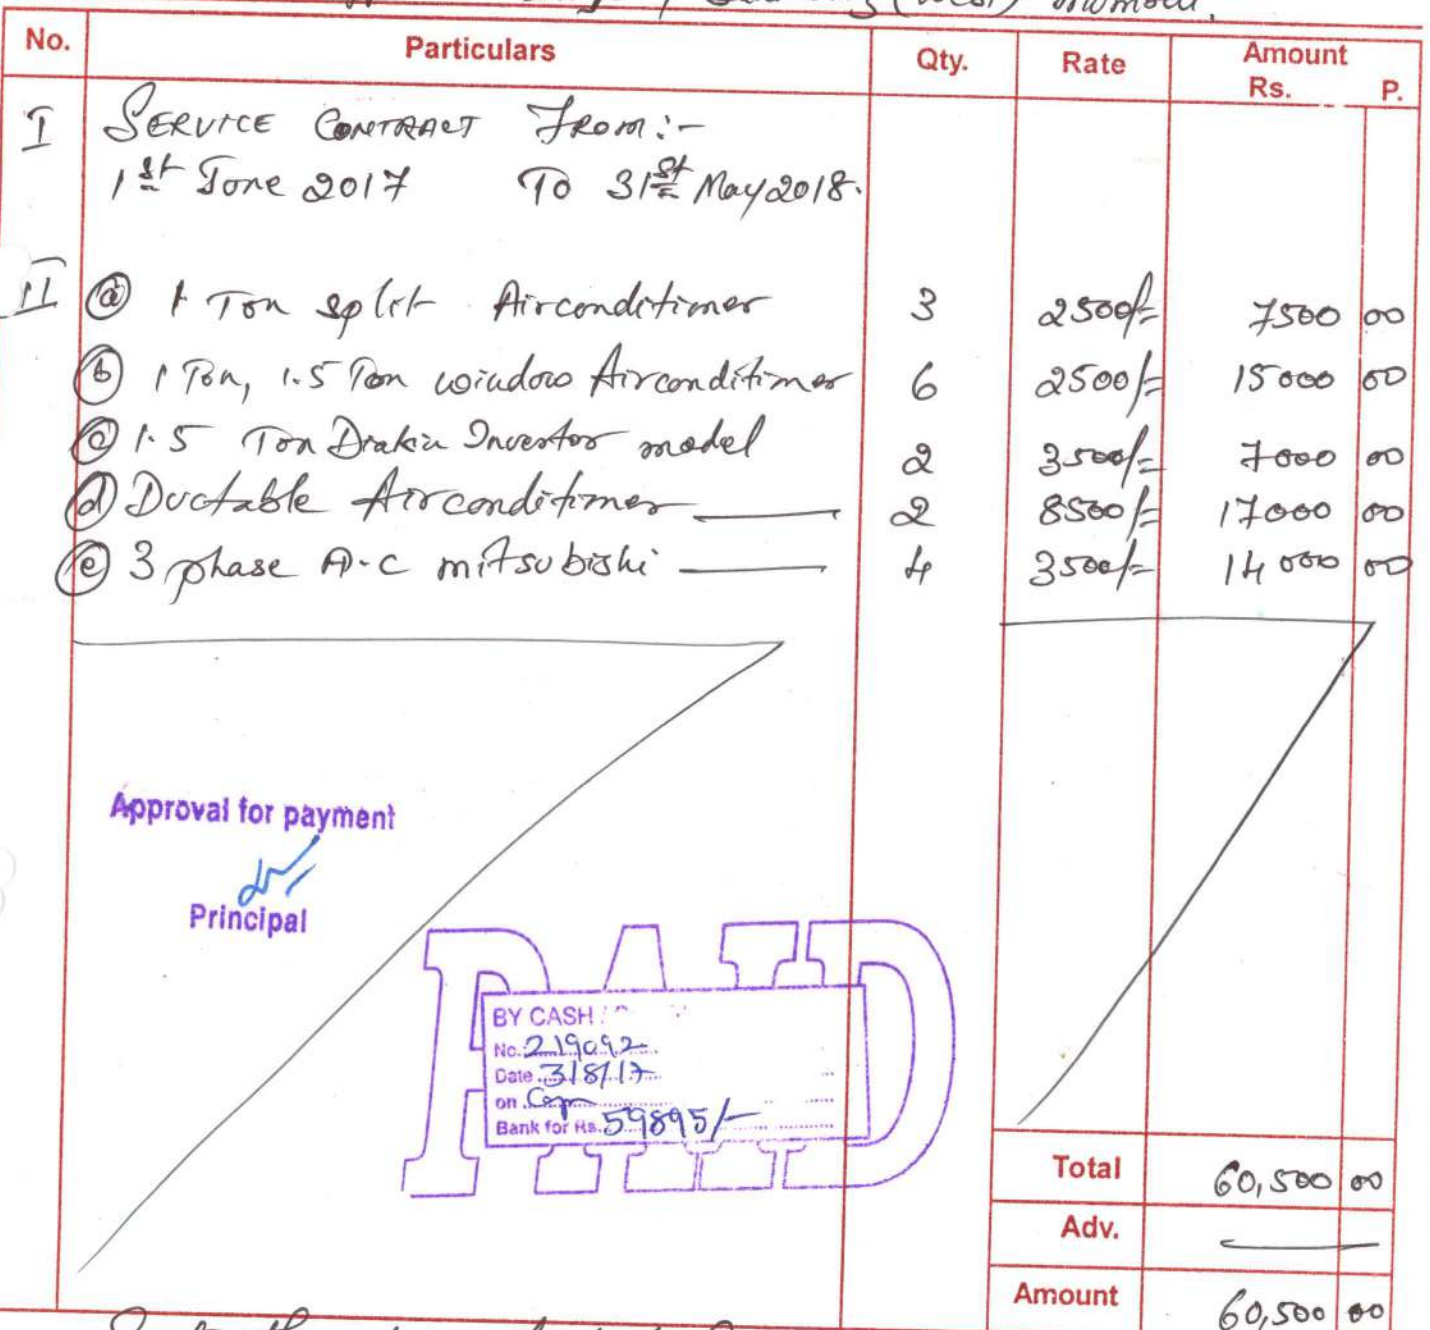 (West) Mumbai.
No. Particulars Qty. Rate Amount Rs. P.
I SERVICE CONTRACT FROM:-
1st June 2017 To 31st May 2018.
II (a) 1 Ton split Airconditioner 3 2500/= 7500 00
(b) 1 Ton, 1.5 Ton window Airconditioner 6 2500/= 15000 00
(c) 1.5 Ton Diakin Invertor model 2 3500/= 7000 00
(d) Ductable Airconditioner 2 8500/= 17000 00
(e) 3 phase A.C mitsubishi 4 3500/= 14000 00
Approval for payment
Principal
PAID
BY CASH /
No. 219092
Date 3/8/17
on
Bank for Rs. 59895/-
Total 60,500 00
Adv. —
Amount 60,500 00